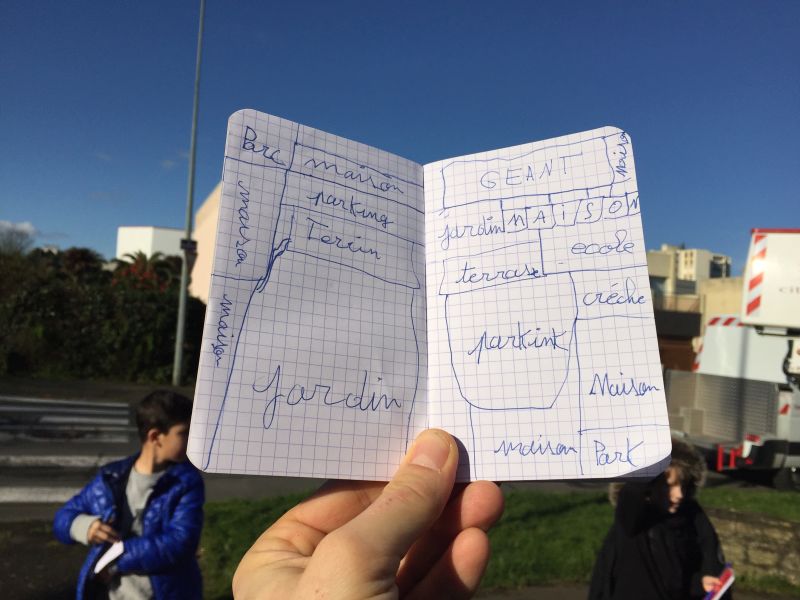 Parc
maison
maison
parking
Terrin
maison
Jardin
GEANT
Maison
jardin MAISON
ecole
terrase
créche
parkink
Maison
maison
Park